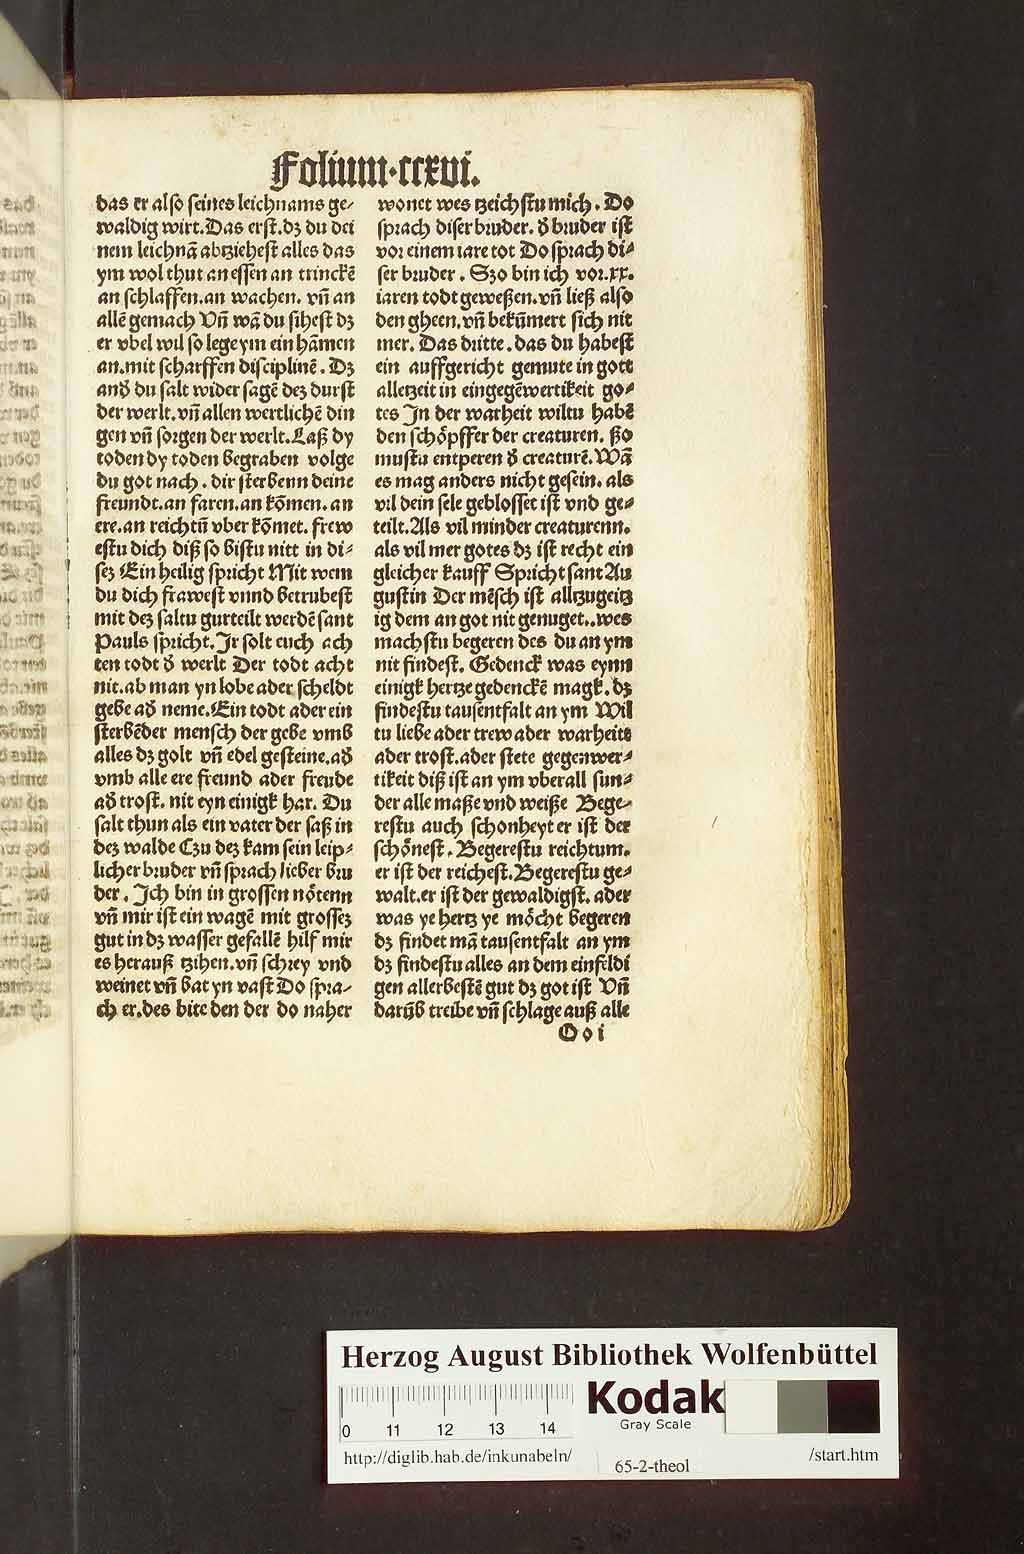 Folium·ccxvi.
das er also seines leichnams ge⸗
waldig wirt. Das erst. dz du dei
nem leichnā abtziehest alles das
ym wol thut an essen an trinckē
an schlaffen. an wachen. vn̄ an
allē gemach Vn̄ wā du sihest dz
er vbel wil so lege ym ein hāmen
an. mit scharffen disciplinē. Dz
and̕ du salt wider sagē dez durst
der werlt. vn̄ allen wertlichē din
gen vn̄ sorgen der werlt. Laß dy
toden dy toden begraben volge
du got nach. dir sterbenn deine
freundt. an faren. an kōmen. an
ere. an reichtū vber kōmet. frew
estu dich diß so bistu nitt in di⸗
sez Ein heilig spricht Mit wem
du dich frawest vnnd betrubest
mit dez saltu gurteilt werdē sant
Pauls spricht. Ir solt euch ach
ten todt d̕ werlt Der todt acht
nit. ab man yn lobe ader scheldt
gebe ad̕ neme. Ein todt ader ein
sterbēder mensch der gebe vmb
alles dz golt vn̄ edel gesteine. ad̕
vmb alle ere freund ader freude
ad̕ trost. nit eyn einigk har. Du
salt thun als ein vater der saß in
dez walde Czu dez kam sein leip⸗
licher bruder vn̄ sprach lieber bru
der. Ich bin in grossen nötenn
vn̄ mir ist ein wagē mit grossez
gut in dz wasser gefallē hilf mir
es herauß tzihen. vn̄ schrey vnd
weinet vn̄ bat yn vast Do spra⸗
ch er. des bite den der do naher
wonet wes tzeichstu mich. Do
sprach diser bruder. d̕ bruder ist
vor einem iare tot Do sprach di⸗
ser bruder. Szo bin ich vor. xx.
iaren todt geweßen. vn̄ ließ also
den gheen. vn̄ bekūmert sich nit
mer. Das dritte. das du habest
ein auffgericht gemute in gott
alletzeit in eingegēwertikeit go⸗
tes In der warheit wiltu habē
den schöpffer der creaturen. ßo
mustu entperen d̕ creaturē. Wā
es mag anders nicht gesein. als
vil dein sele geblosset ist vnd ge⸗
teilt. Als vil minder creaturenn.
als vil mer gotes dz ist recht ein
gleicher kauff Spricht sant Au
gustin Der mēsch ist alltzugeitz
ig dem an got nit genuget.. wes
machstu begeren des du an ym
nit findest. Gedenck was eynn
einigk hertze gedenckē magk. dz
findestu tausentfalt an ym Wil
tu liebe ader trew ader warheitt
ader trost. ader stete gegenwer⸗
tikeit diß ist an ym vberall sun⸗
der alle maße vnd weiße Bege⸗
restu auch schonheyt er ist der
schönest. Begerestu reichtum.
er ist der reichest. Begerestu ge⸗
walt. er ist der gewaldigst. ader
was ye hertz ye möcht begeren
dz findet mā tausentfalt an ym
dz findestu alles an dem einfeldi
gen allerbestē gut dz got ist Vn̄
darūb treibe vn̄ schlage auß alle
O o i
Herzog August Bibliothek Wolfenbüttel
0 11 12 13 14
Kodak
Gray Scale
http://diglib.hab.de/inkunabeln/
65-2-theol
/start.htm